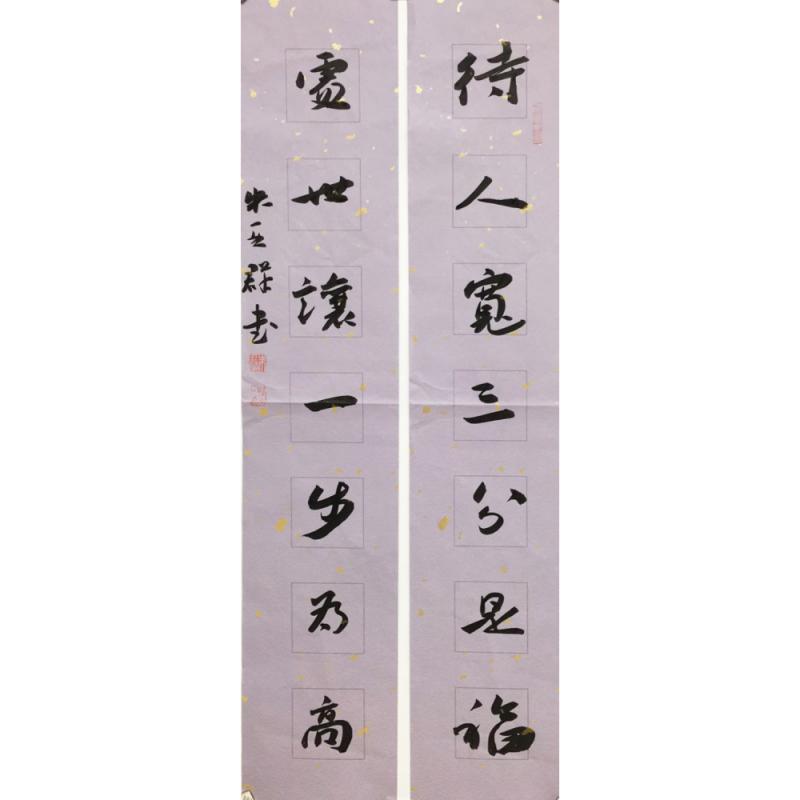 待人寬三分是福
處世讓一步為高
朱亞群书